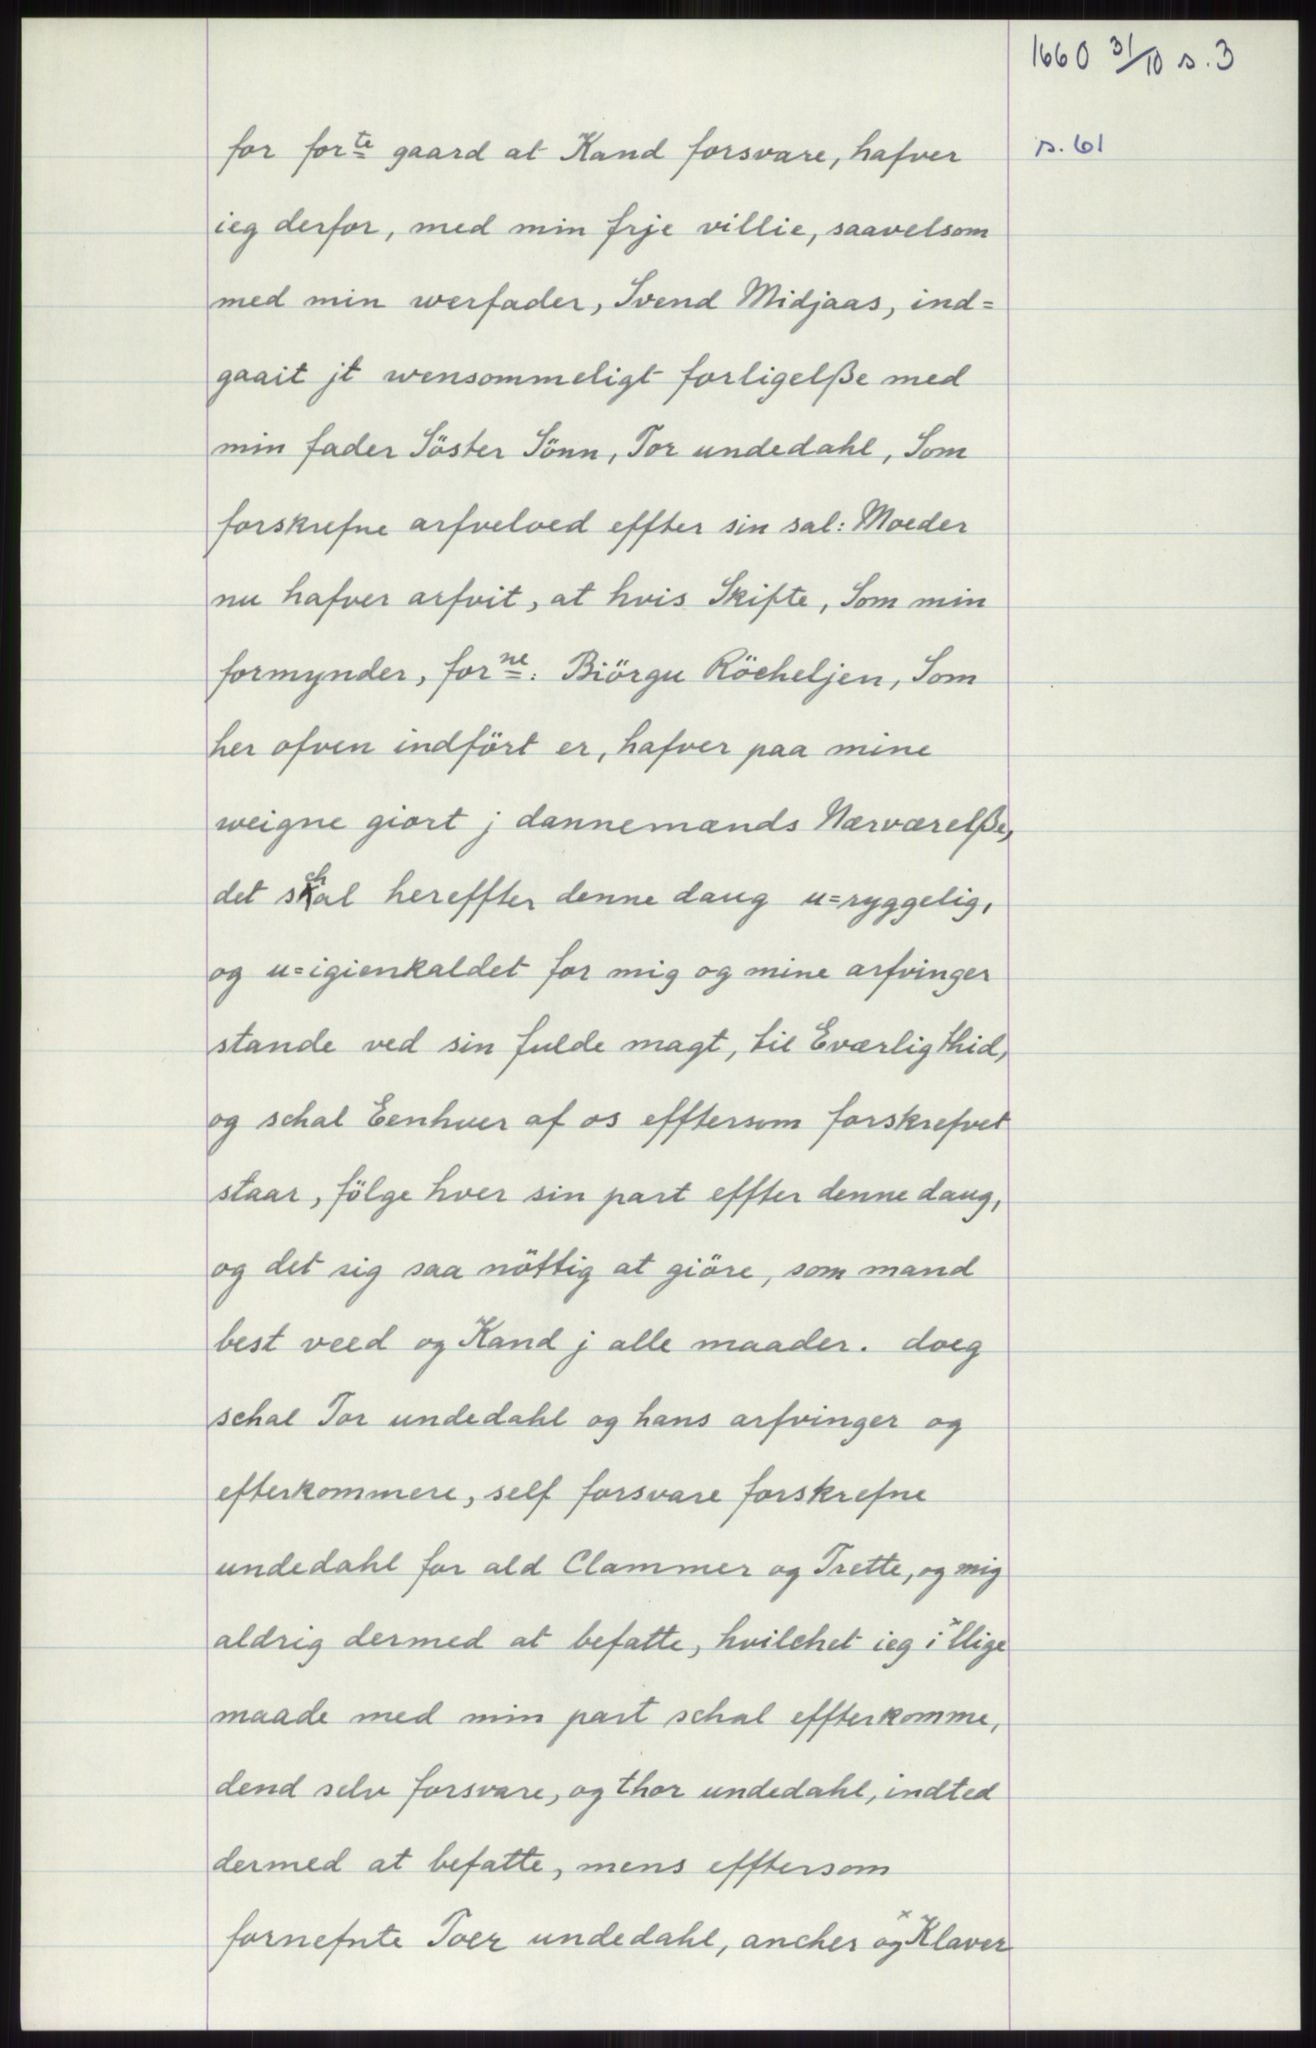 1660 31/10 s. 3
s. 61
for forte gaard at Kand forsvare, hafver
ieg derfor, med min frje villie, saavelsom
med min werfader, Svend Midjaas, ind=
gaait jt wensommeligt forligelße med
min fader Söster Sönn, Tor undedahl, Som
forskrefne arfvelved effter sin sal: Moeder
nu hafver arfvit, at hvis Skifte, Som min
formynder, forne: Biörgu Röcheljen, Som
her ofven indfört er, hafver paa mine
weigne giort j dannemænds Nærværelße,
det schal hereffter denne daug u=ryggelig,
og u=igienkaldet for mig og mine arfvinger
stande ved sin fulde magt, til Eværlig thid,
og schal Eenhver af os efftersom forskrefvet
staar, fölge hver sin part effter denne daug,
og det sig saa nöttig at giöre, som mand
best veed og Kand j alle maader. doeg
schal Tor undedahl og hans arfvinger og
efterkommere, self forsvare forskrefne
undedahl for ald Clammer og Trette, og mig
aldrig dermed at befatte, hvilchet ieg i xllige
maade med min part schal effterkomme,
dend selv forsvare, og thor undedahl, indted
dermed at befatte, mens efftersom
fornefnte Toer undedahl, ancher og xKlaver